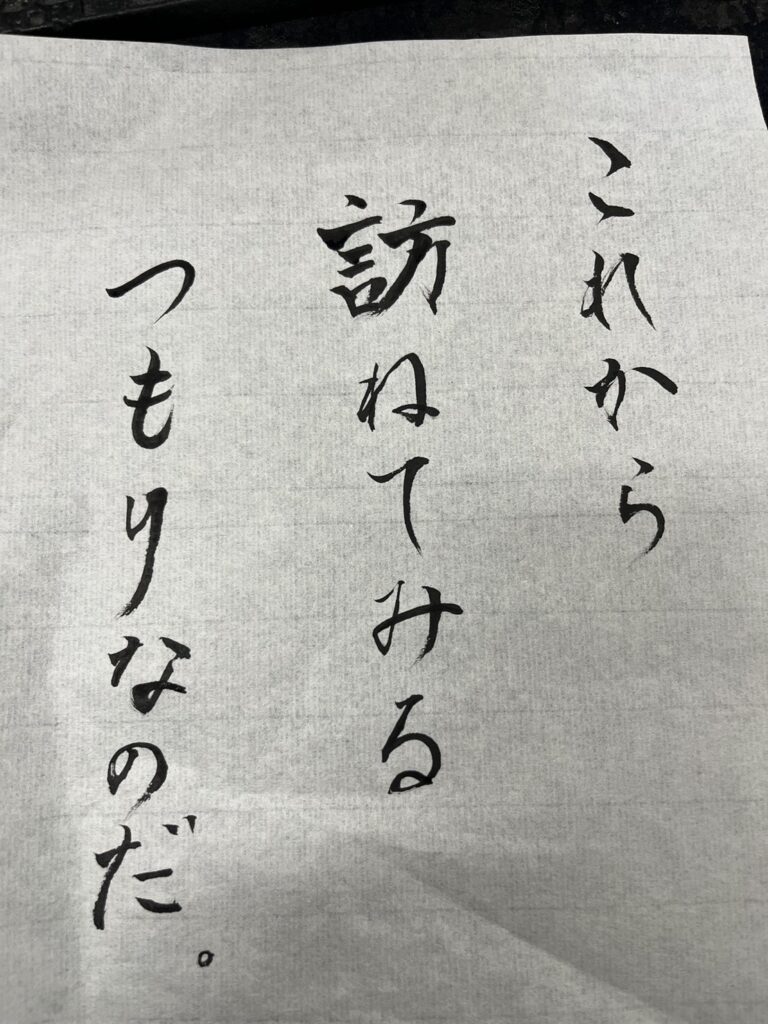 これから
訪ねてみる
つもりなのだ。